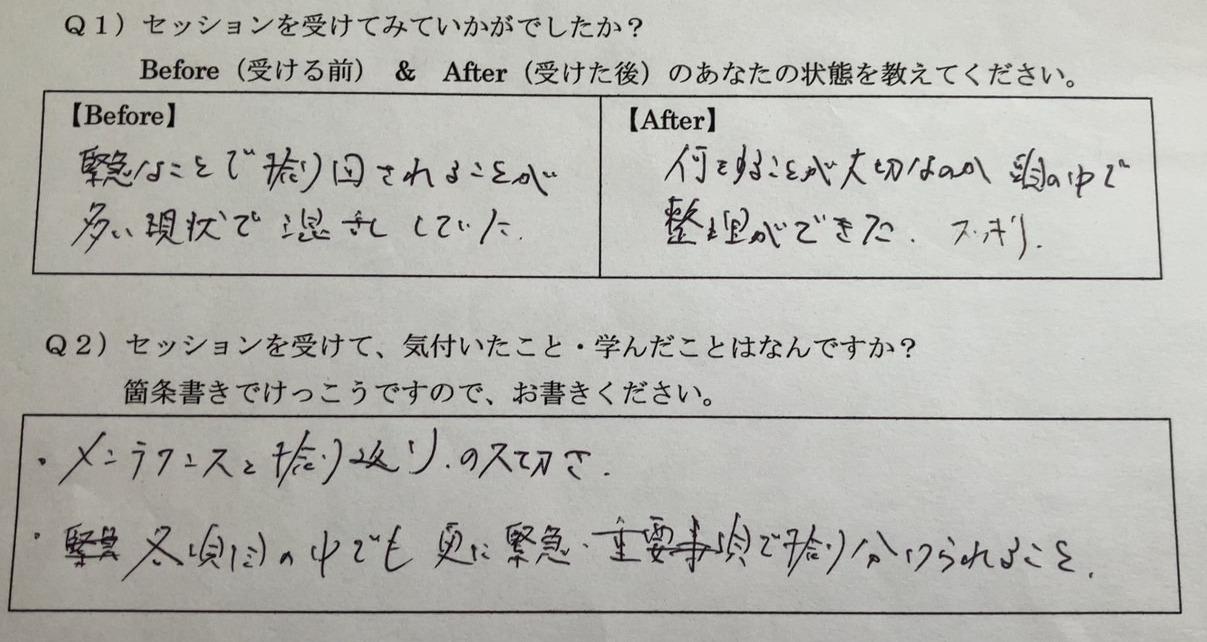 Q1）セッションを受けてみていかがでしたか？
Before（受ける前） & After（受けた後）のあなたの状態を教えてください。
【Before】
緊急なことで振り回されることが
多い現状で混乱していた.
【After】
何をすることが大切なのか 頭の中で
整理ができた. スッキリ.
Q2）セッションを受けて、気付いたこと・学んだことはなんですか？
箇条書きでけっこうですので、お書きください。
・メンテナンスと振り返り.の大切さ.
・の中でも 更に緊急・重要事項で振り分けられること.